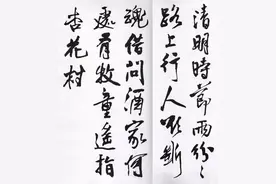 清明時節雨紛〻
路上行人欲斷
魂借問酒家何
處有牧童遙指
杏花村